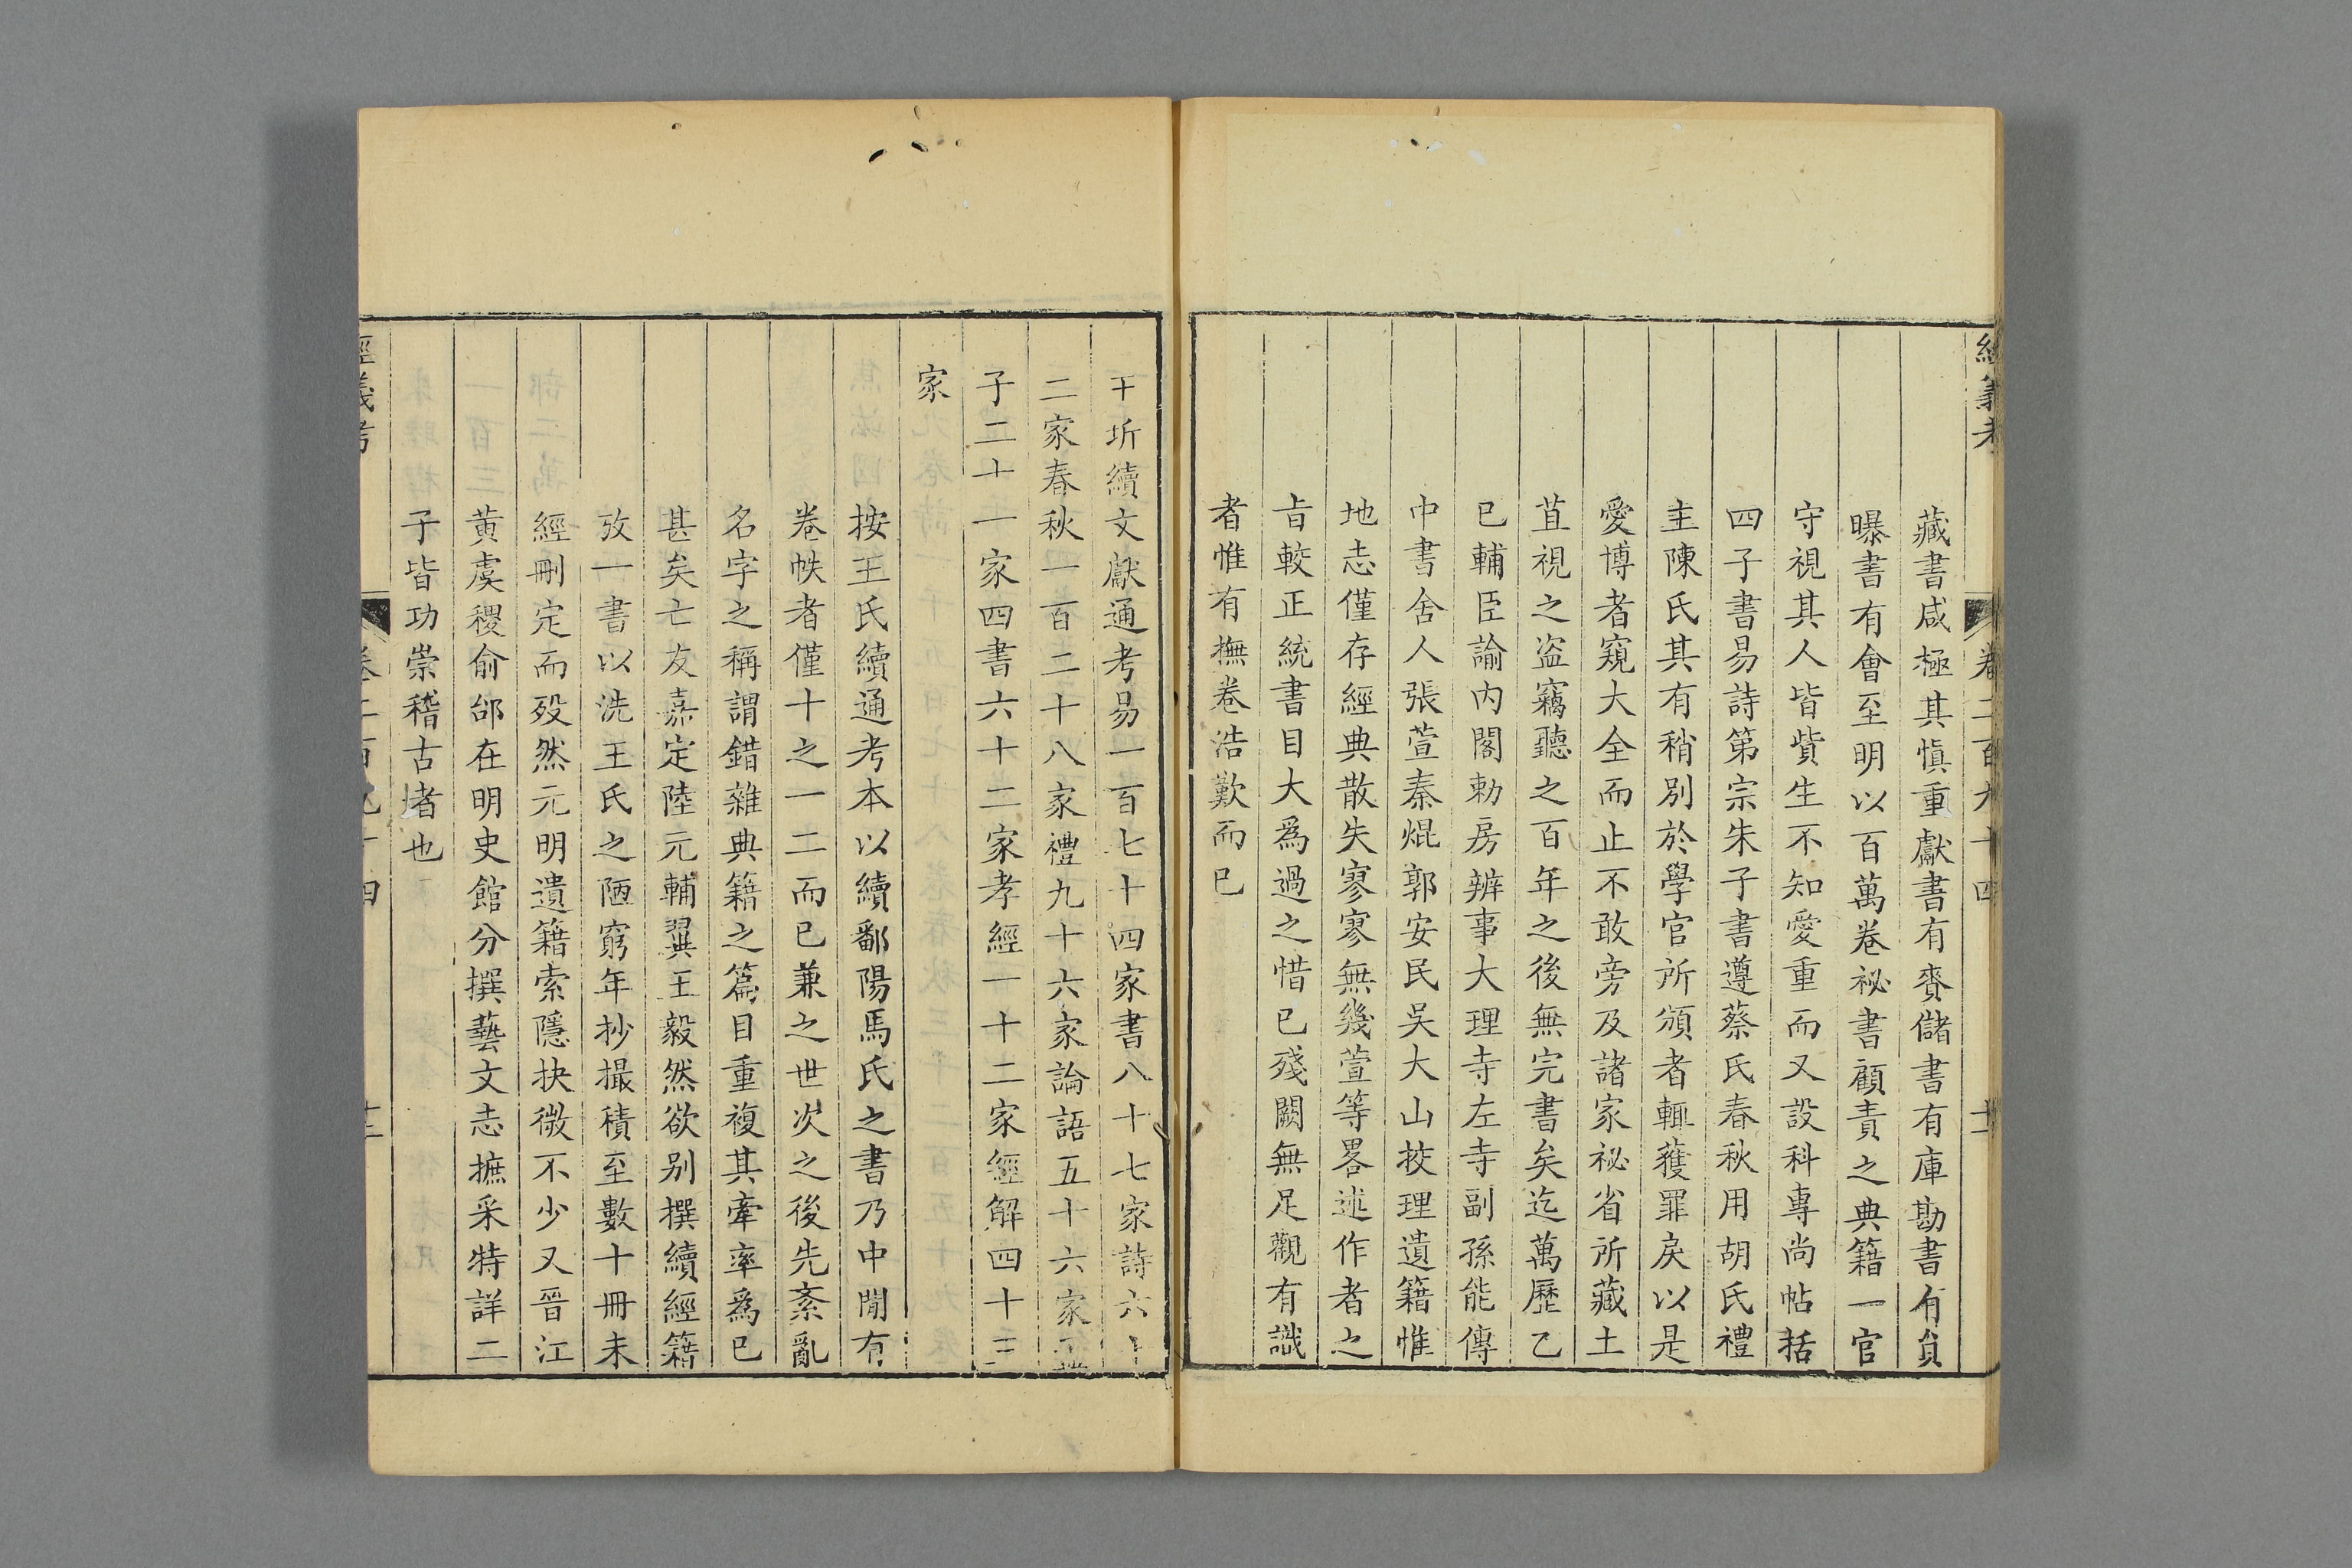 經義考 卷二百九十四 十二
藏書咸極其慎重獻書有賚儲書有庫勘書有員
曝書有會至明以百萬卷祕書顧責之典籍一官
守視其人皆貲生不知愛重而又設科專尚帖括
四子書易詩第宗朱子書遵蔡氏春秋用胡氏禮
主陳氏其有稍別於學官所頒者輒獲罪戾以是
愛博者窺大全而止不敢旁及諸家祕省所藏土
苴視之盜竊聽之百年之後無完書矣迄萬歷乙
巳輔臣諭內閣勅房辦事大理寺左寺副孫能傳
中書舍人張萱秦焜郭安民吳大山挍理遺籍惟
地志僅存經典散失寥寥無幾萱等畧述作者之
旨較正統書目大為過之惜已殘闕無足觀有識
者惟有撫卷浩歎而已
王圻續文獻通考易一百七十四家書八十七家詩六十
二家春秋一百二十八家禮九十六家論語五十六家孟
子二十一家四書六十二家孝經一十二家經解四十三
家
按王氏續通考本以續鄱陽馬氏之書乃中間有
卷帙者僅十之一二而已兼之世次之後先紊亂
名字之稱謂錯雜典籍之篇目重複其牽率為已
甚矣亡友嘉定陸元輔翼王毅然欲別撰續經籍
攷一書以洗王氏之陋窮年抄撮積至數十冊未
經刪定而歿然元明遺籍索隱抉微不少又晉江
黃虞稷俞邰在明史館分撰藝文志摭采特詳二
子皆功崇稽古者也
經義考 卷二百九十四 十三